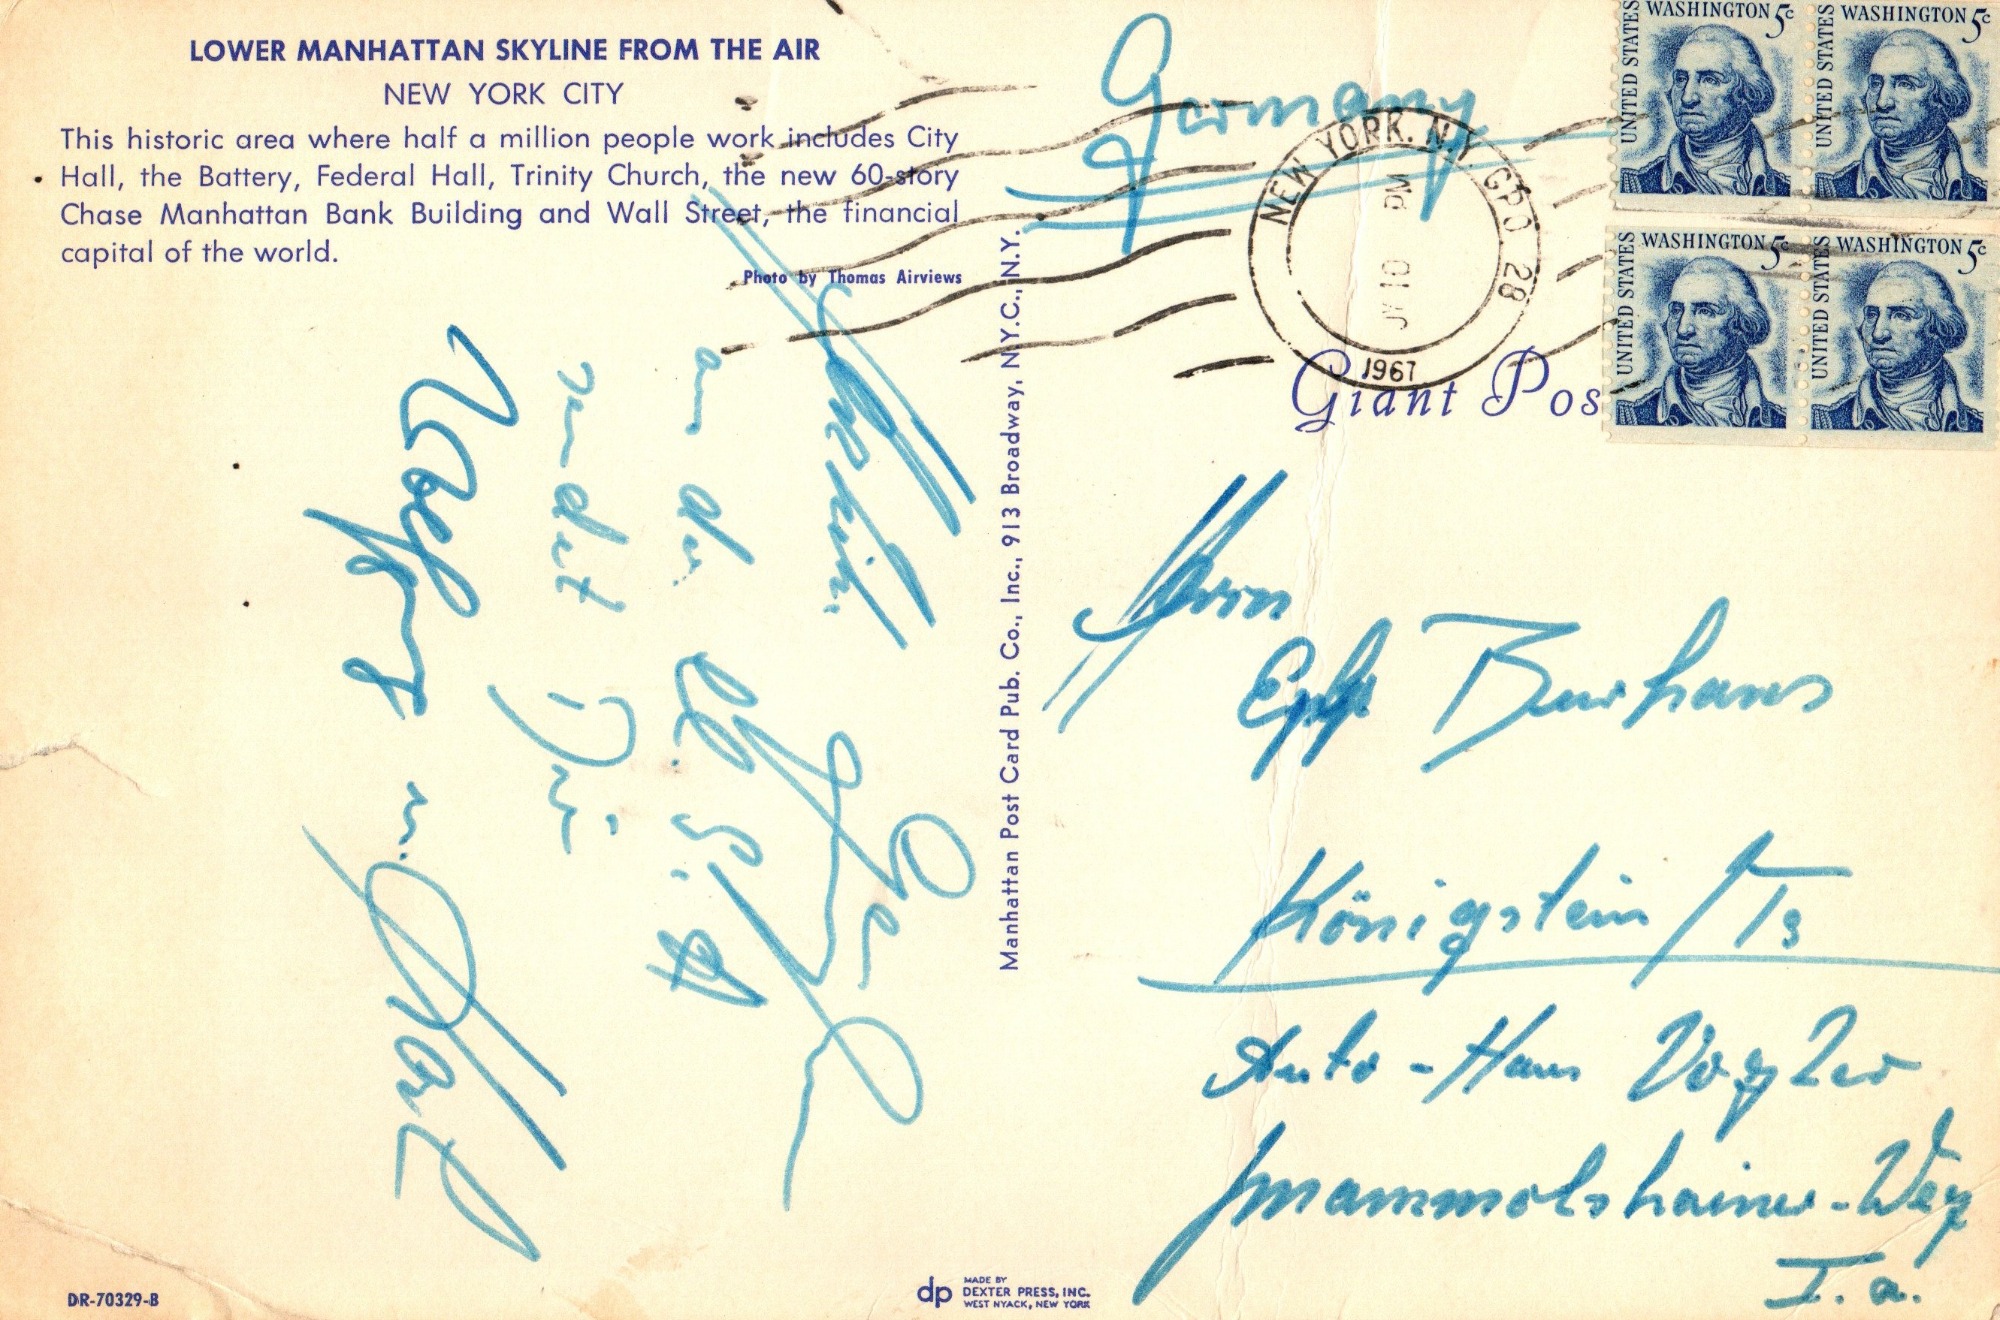 LOWER MANHATTAN SKYLINE FROM THE AIR
NEW YORK CITY
This historic area where half a million people work includes City
Hall, the Battery, Federal Hall, Trinity Church, the new 60-story
Chase Manhattan Bank Building and Wall Street, the financial
capital of the world.
Photo by Thomas Airviews
an der
sendet Dir
Wolfgang u.
Manhattan Post Card Pub. Co., Inc., 913 Broadway, N.Y.C., N.Y.
Germany
NEW YORK. N.Y. GPO 28
PM
JY 10
1967
UNITED STATES WASHINGTON 5c
UNITED STATES WASHINGTON 5c
UNITED STATES WASHINGTON 5c
UNITED STATES WASHINGTON 5c
Giant Pos
Herrn
Burhans
Königstein/Ts
Auto-Haus Vogler
Mammolshainer-Weg
I. a.
DR-70329-B
dp MADE BY
DEXTER PRESS, INC.
WEST NYACK, NEW YORK